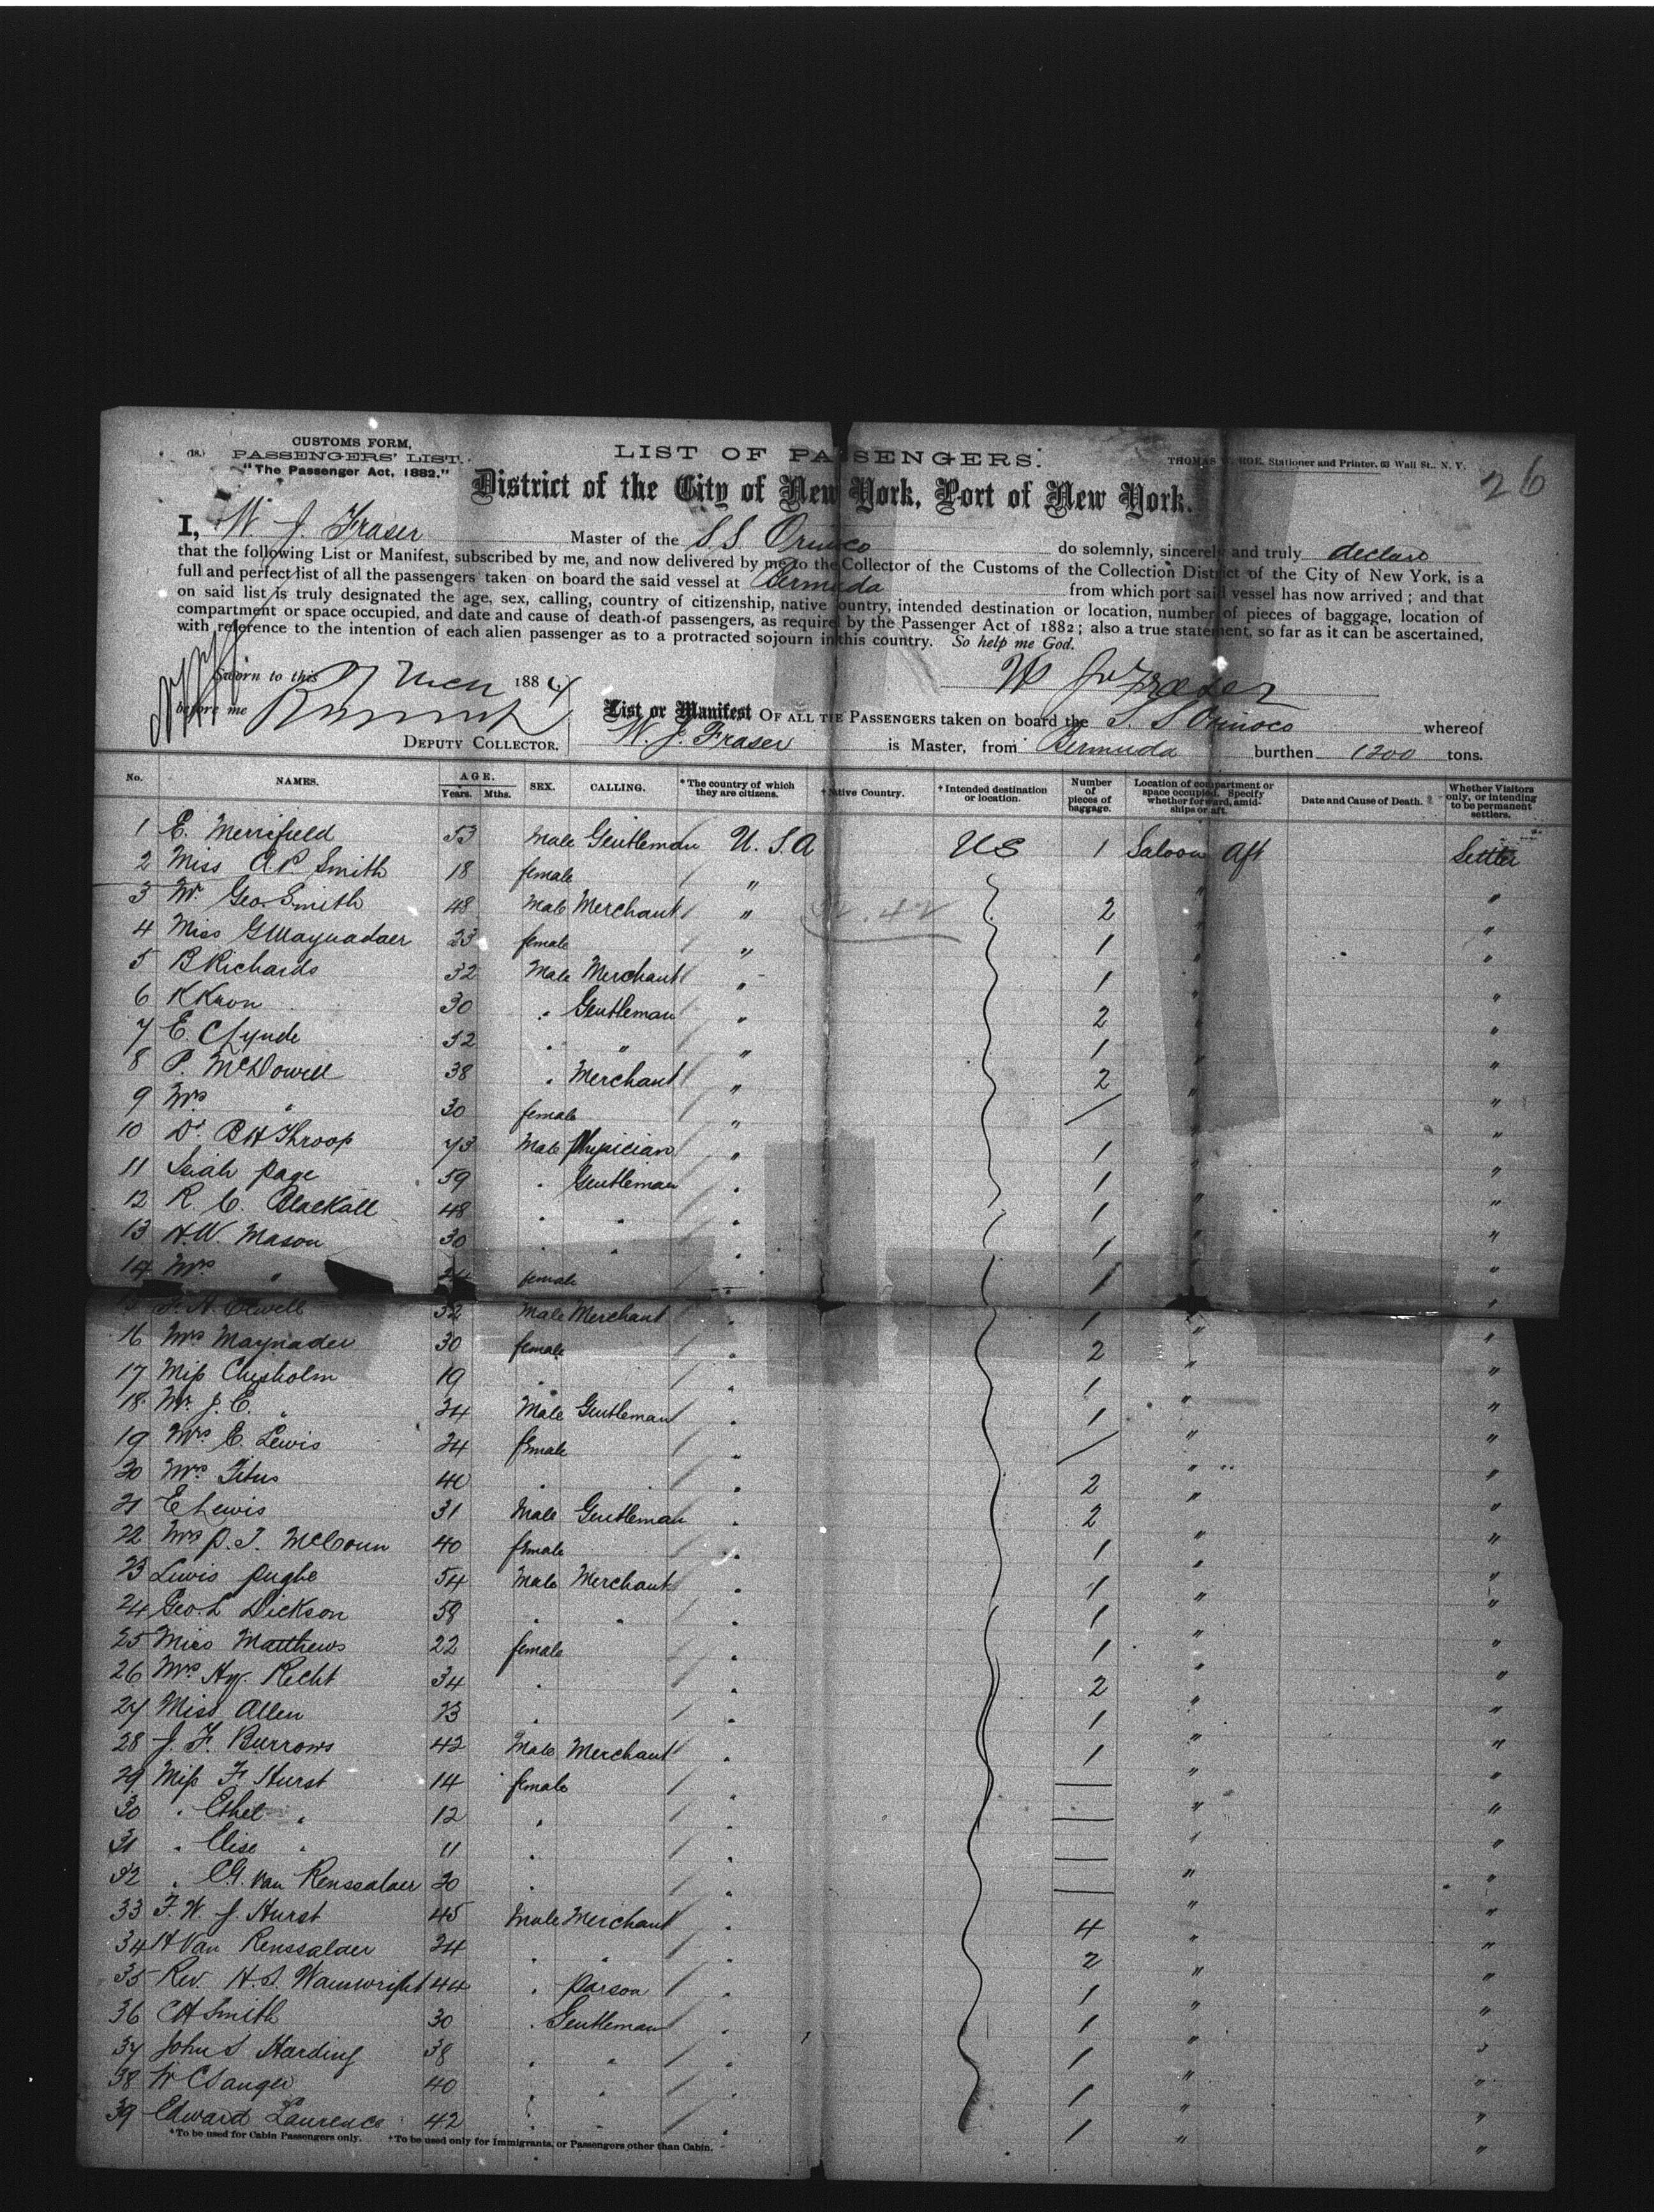 (18.)
CUSTOMS FORM,
PASSENGERS' LIST.
"The Passenger Act, 1882."
LIST OF PASSENGERS.
THOMAS W. ROE, Stationer and Printer, 63 Wall St., N. Y.
26
District of the City of New York, Port of New York.
I, W. J. Fraser Master of the S.S. Orinoco do solemnly, sincerely and truly declare
that the following List or Manifest, subscribed by me, and now delivered by me to the Collector of the Customs of the Collection District of the City of New York, is a
full and perfect list of all the passengers taken on board the said vessel at Bermuda from which port said vessel has now arrived; and that
on said list is truly designated the age, sex, calling, country of citizenship, native country, intended destination or location, number of pieces of baggage, location of
compartment or space occupied, and date and cause of death of passengers, as required by the Passenger Act of 1882; also a true statement, so far as it can be ascertained,
with reference to the intention of each alien passenger as to a protracted sojourn in this country. So help me God.
Sworn to this 188
before me
W J Fraser
DEPUTY COLLECTOR.
List or Manifest OF ALL THE PASSENGERS taken on board the S. S Orinoco whereof
W. J. Fraser is Master, from Bermuda burthen 1200 tons.
No. NAMES. AGE. Years. Mths. SEX. CALLING. *The country of which they are citizens. †Native Country. †Intended destination or location. Number of pieces of baggage. Location of compartment or space occupied. Specify whether forward, amidships or aft. Date and Cause of Death. Whether Visitors only, or intending to be permanent settlers.
1 E. Merrifield 53 Male Gentleman U. S. A US 1 Saloon Aft Settler
2 Miss A. P. Smith 18 female " " "
3 Mr. Geo. Smith 48 Male Merchant " 2 " "
4 Miss G Maynadaer 23 female " 1 " "
5 B Richards 32 Male Merchant " 1 " "
6 K Kron 30 " Gentleman " 2 " "
7 E. C Lynde 52 " " " 1 " "
8 P. McDowell 38 " Merchant " 2 " "
9 Mrs " 30 female " / " "
10 Dr. B H Throop 73 Male Physician " 1 " "
11 Isiah Page 59 " Gentleman " 1 " "
12 R. C. Blackall 48 " " " 1 " "
13 H. W. Mason 30 " " " 1 " "
14 Mrs " 24 female " 1 " "
15 32 Male Merchant " 1 " "
16 Mrs Maynader 30 female " 2 " "
17 Miss Chisholm 19 " " 1 " "
18 Mr J. E. " 34 Male Gentleman " 1 " "
19 Mrs E. Lewis 24 female " / " "
20 Mrs Titus 40 " " 2 " "
21 E Lewis 31 Male Gentleman " 2 " "
22 Mrs P. T. McCoun 40 female " 1 " "
23 Lewis Pughe 54 Male Merchant " 1 " "
24 Geo. L Dickson 58 " " " 1 " "
25 Miss Matthews 22 female " 1 " "
26 Mrs Hy. Recht 34 " " 2 " "
27 Miss Allen 23 " " 1 " "
28 J. F. Burrows 42 Male Merchant " 1 " "
29 Miss F. Hurst 14 female " — " "
30 " Ethel " 12 " " — " "
31 " Elise " 11 " " — " "
32 " C. G. Van Renssalaer 20 " " — " "
33 F. W. J. Hurst 45 Male Merchant " 4 " "
34 H Van Renssalaer 34 " " " 2 " "
35 Rev. H. S. Wainwright 44 " Parson " 1 " "
36 C H Smith 30 " Gentleman " 1 " "
37 John S Harding 38 " " " 1 " "
38 W C Sanger 40 " " " 1 " "
39 Edward Laurence 42 " " " 1 " "
*To be used for Cabin Passengers only. †To be used only for Immigrants, or Passengers other than Cabin.